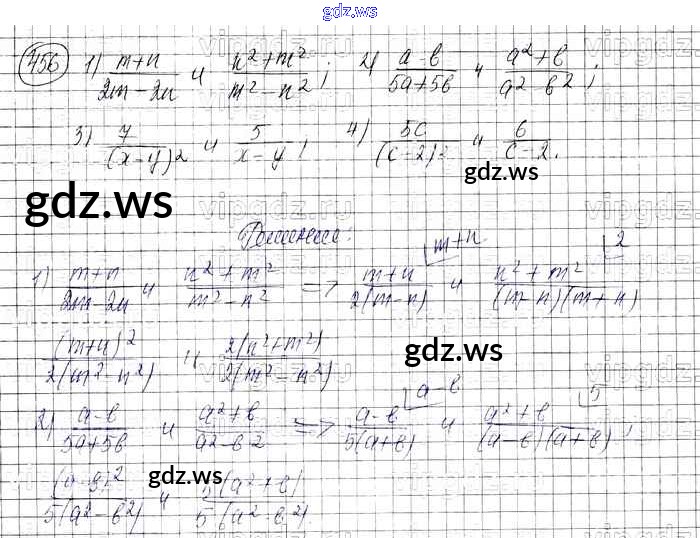 gdz.ws
456 1) (m+n)/(2m-2n) и (n²+m²)/(m²-n²); 2) (a-b)/(5a+5b) и (a²+b)/(a²-b²);
3) 7/(x-y)² и 5/(x-y); 4) 5c/(c-2)² и 6/(c-2).
gdz.ws
gdz.ws
Решение:
1) (m+n)/(2m-2n) и (n²+m²)/(m²-n²) => (m+n)/(2(m-n)) ⌊m+n и (n²+m²)/((m-n)(m+n)) ⌊2
(m+n)²/(2(m²-n²)) и 2(n²+m²)/(2(m²-n²))
gdz.ws
2) (a-b)/(5a+5b) и (a²+b)/(a²-b²) => (a-b)/(5(a+b)) ⌊a-b и (a²+b)/((a-b)(a+b)) ⌊5;
(a-b)²/(5(a²-b²)) и 5(a²+b)/(5(a²-b²)).
gdz.ws